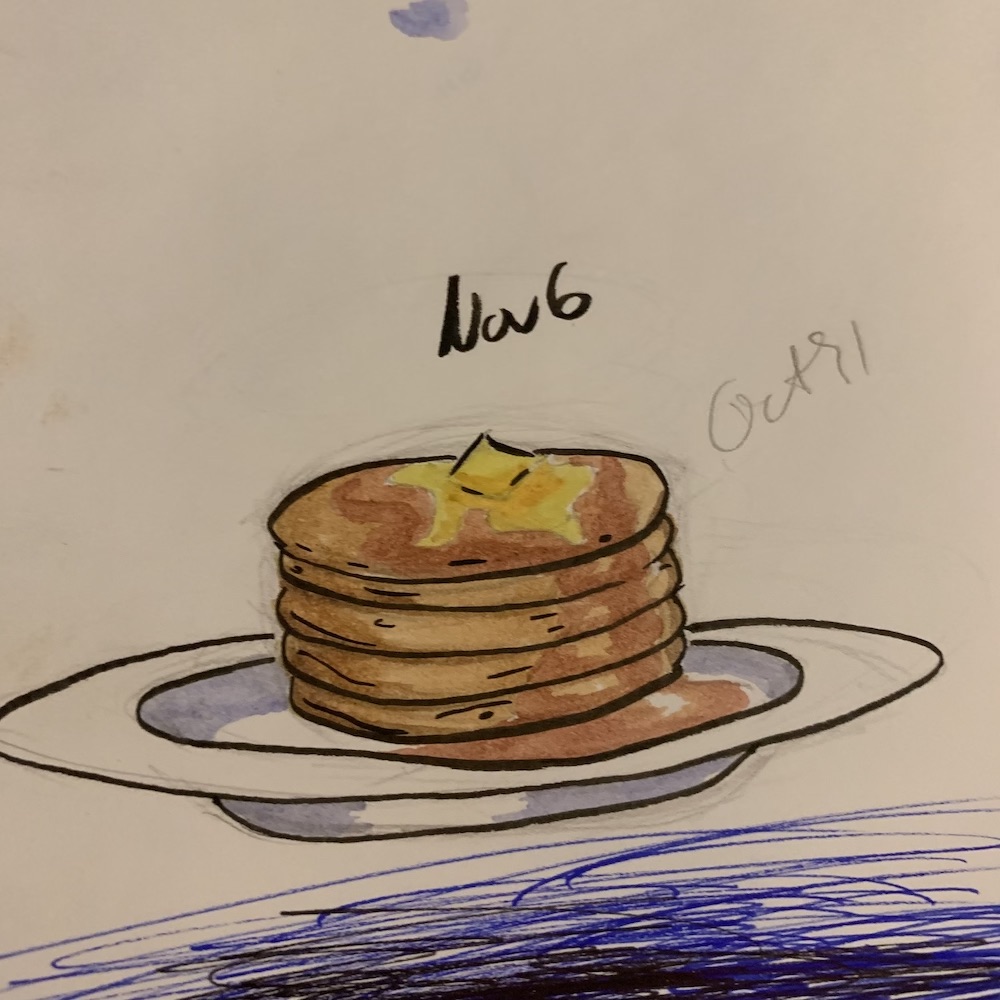 Nov 6
Oct 31